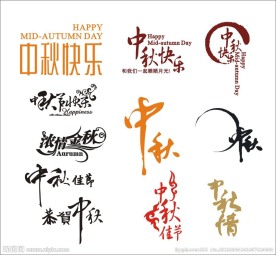 HAPPY
MID-AUTUMN DAY
中秋快乐
HAPPY
Mid-autumn Day
中秋快乐
和我们一起晒晒月光!
中秋
快乐
HAPPY
Mid-autumn Day
中秋快乐
Happiness
浓情金秋
Aurumn
中秋
中秋
中秋佳节
恭賀中秋
中秋
佳节
中秋惜